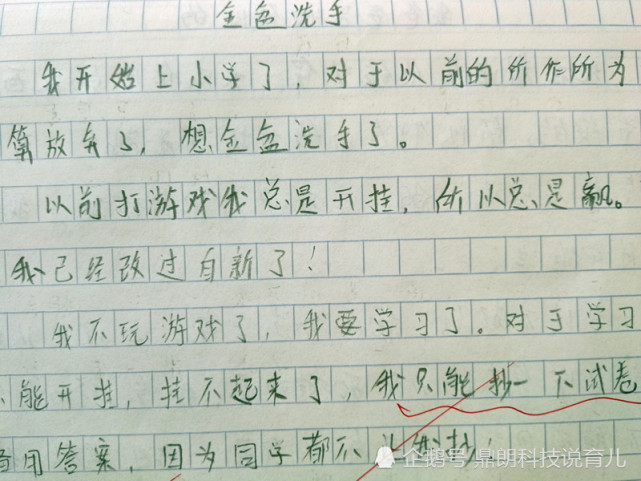 金盆洗手
我开始上小学了，对于以前的所作所为
算放弃了，想金盆洗手了。
以前打游戏我总是开挂，所以总是赢。
我已经改过自新了！
我不玩游戏了，我要学习了。对于学习
能开挂，挂不起来了，我只能抄一下试卷
用答案，因为同学都不让我抄
企鹅号 鼎朗科技说育儿